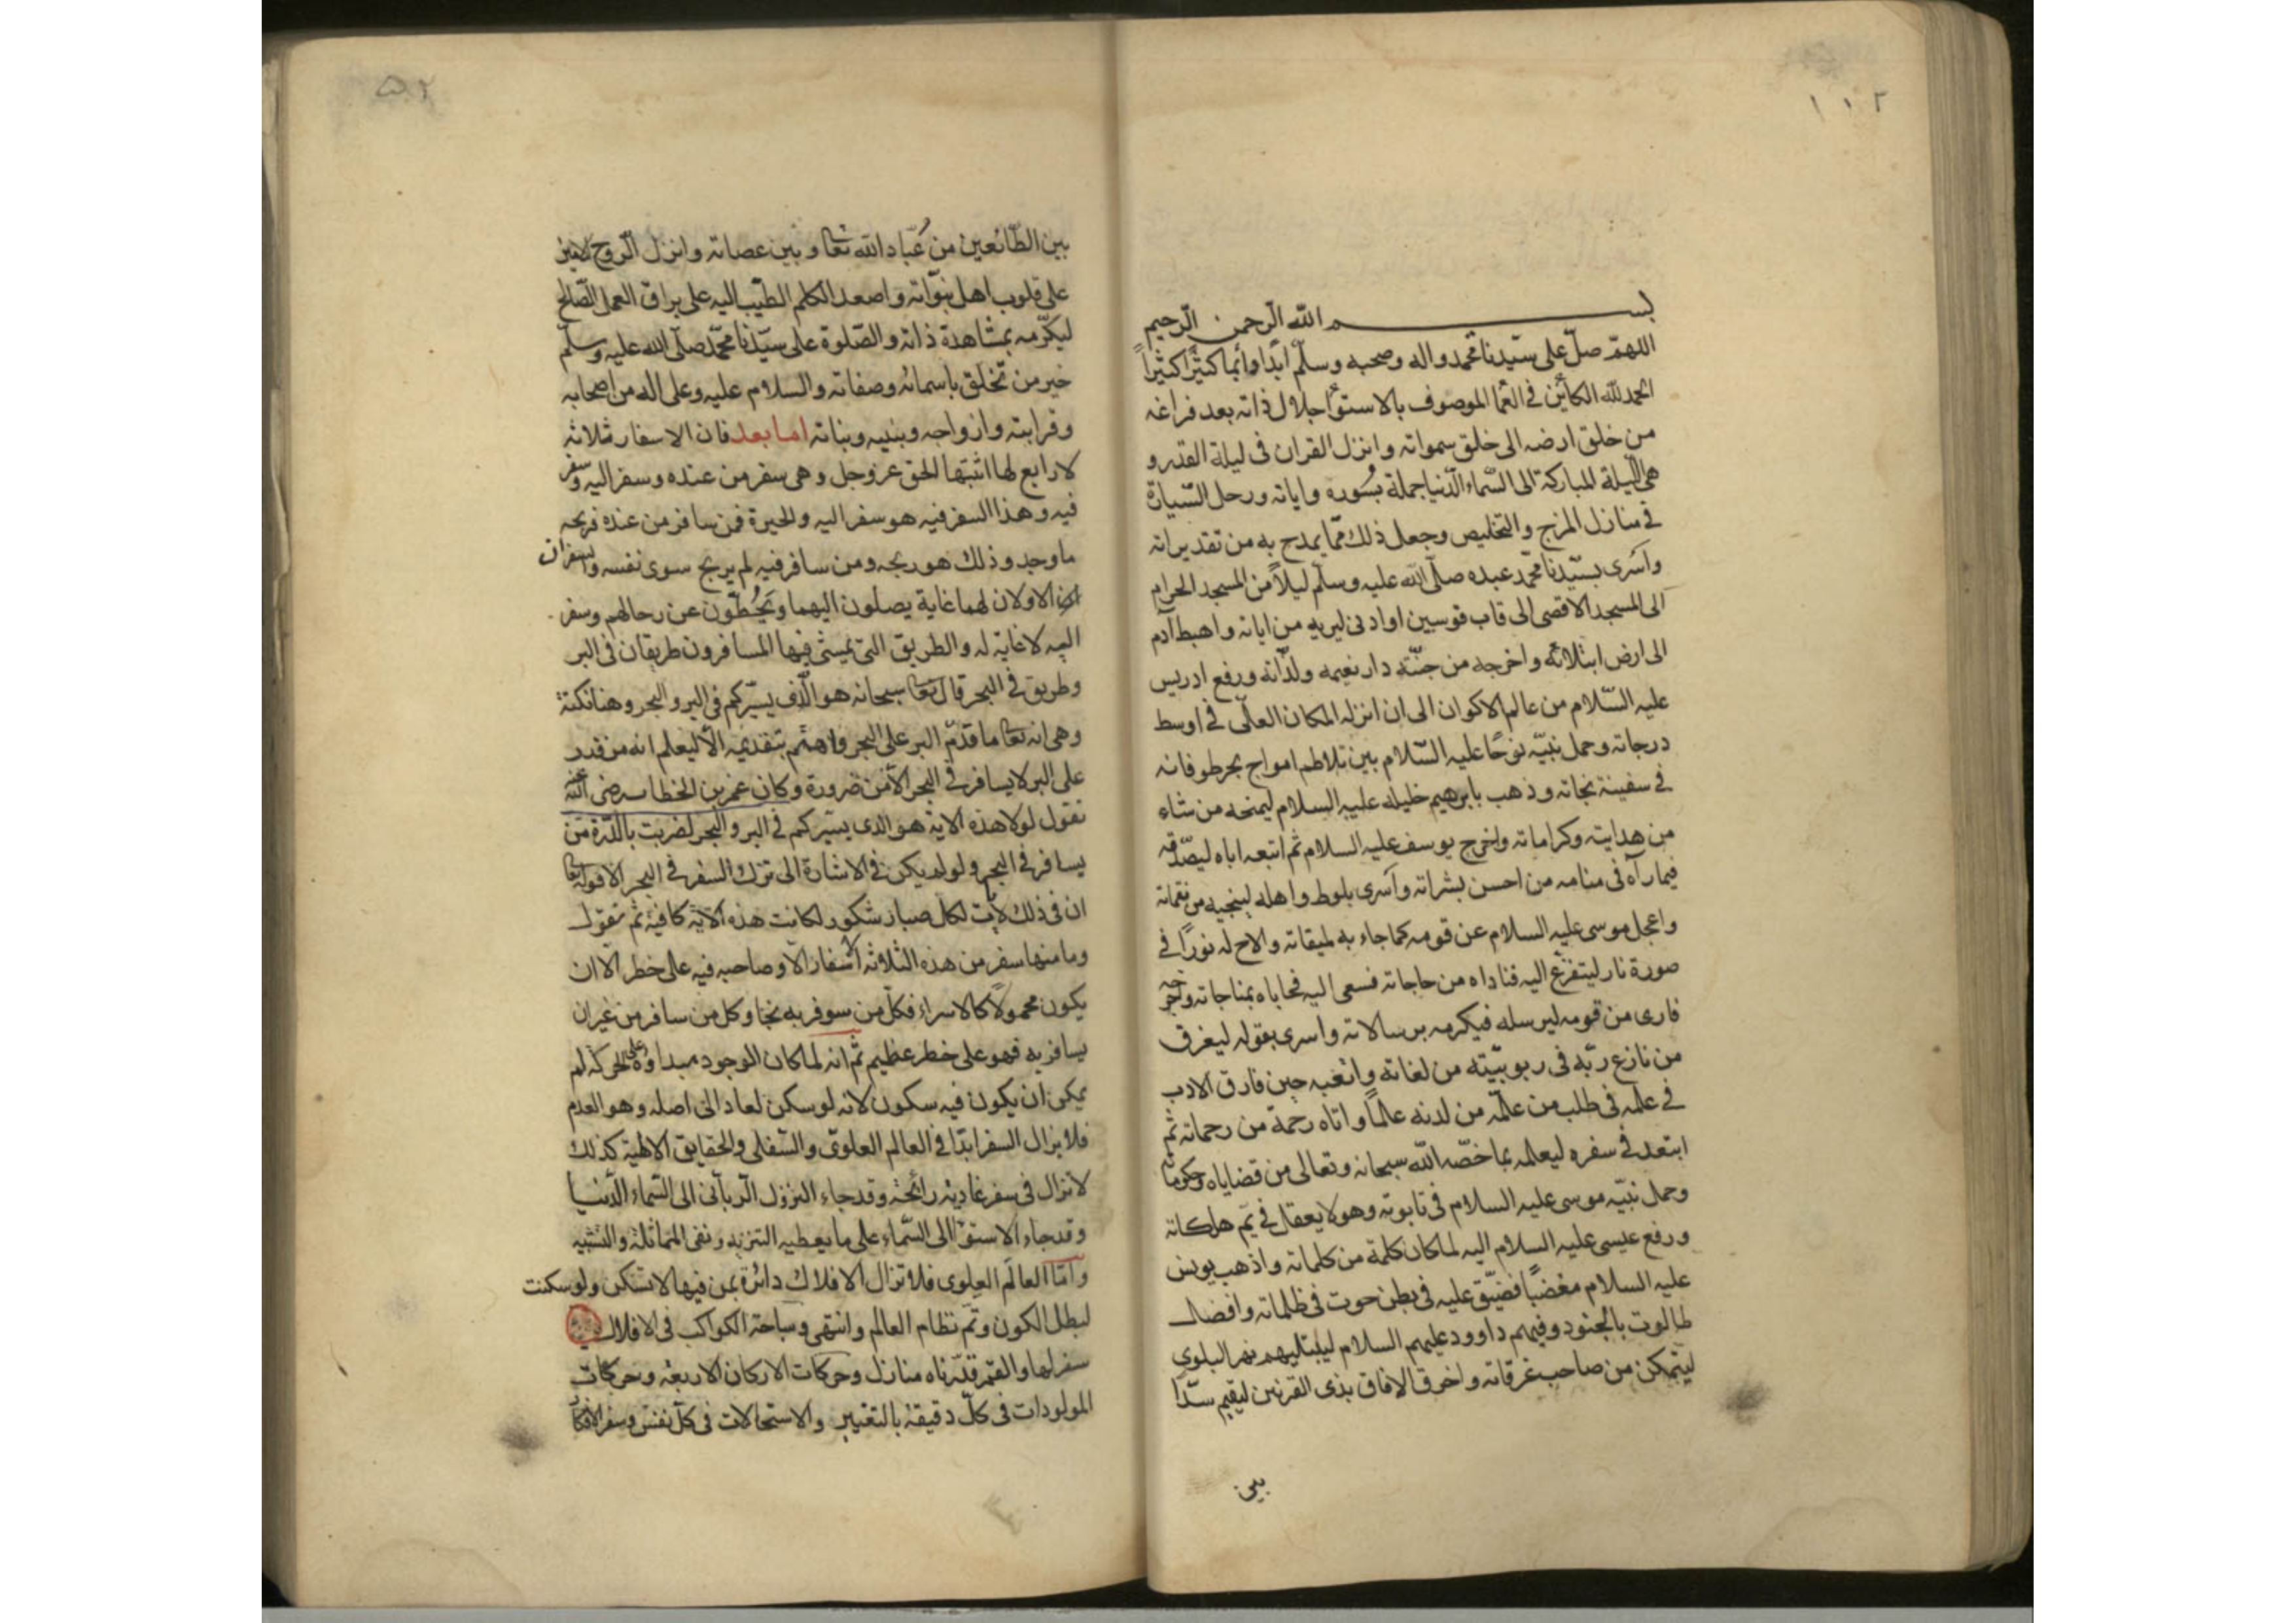 ١١٢
بسم الله الرحمن الرحيم
اللهم صل على سيدنا محمد واله وصحبه وسلم ابدا دائما كثيرا كثيرا
الحمد لله الكائن في العما الموصوف بالاستوا جلال ذاته بعد فراغه
من خلق ارضه الى خلق سمواته وانزل القران فى ليلة القدر و
هى الليلة المباركة الى السماء الدنيا جملة بسوره واياته ورحل السيارة
في منازل المزج والتخليص وجعل ذلك مما يمدح به من تقديراته
واسرى بسيدنا محمد عبده صلى الله عليه وسلم ليلا من المسجد الحرام
الى المسجد الاقصى الى قاب قوسين او ادنى ليريه من اياته واهبط آدم
الى ارض ابتلائه واخرجه من جنته دار نعيمه ولذاته ورفع ادريس
عليه السلام من عالم الاكوان الى ان انزله المكان العلى في اوسط
درجاته وحمل نبيه نوحا عليه السلام بين تلاطم امواج بحر طوفانه
في سفينة نجاته وذهب بابرهيم خليله عليه السلام ليمنحه من شاء
من هدايته وكراماته واخرج يوسف عليه السلام ثم اتبعه اباه ليصدقه
فيما رآه فى منامه من احسن بشراته واسرى بلوط واهله لينجيه من نقماته
واعجل موسى عليه السلام عن قومه كما جاء به لميقاته والاح له نورا في
صورة نار ليتفرغ اليه فناداه من حاجاته فسعى اليه فحاباه بمناجاته واخرجه
فارى من قومه ليرسله فيكرمه برسالاته واسرى بقوله ليغرق
من نازع ربه فى ربوبيته من لغاته واتغبه حين فارق الادب
في علمه فى طلب من علمه من لدنه عالما واتاه رحمة من رحماته ثم
ابتعد في سفره ليعلمه بما خصه الله سبحانه وتعالى من قضاياه وحكوماته
وحمل نبيه موسى عليه السلام فى تابوته وهو لا يعقل في يم هلكاته
ورفع عيسى عليه السلام اليه لما كان كلمة من كلماته واذهب يونس
عليه السلام مغضبا فضيق عليه فى بطن حوت فى ظلماته وافضال
طالوت بالجنود وفيهم داوود عليهم السلام ليبتليهم بنهر البلوى
ليتمكن من صاحب غرقاته واخرق الافاق بذى القرنين ليقيم سدا
بين
٥٢
بين الطائعين من عباد الله تعا وبين عصاته وانزل الروح الامين
على قلوب اهل نبواته واصعد الكلم الطيب اليه على براق العمل الصالح
ليكرمه بمشاهدة ذاته والصلوة على سيدنا محمد صلى الله عليه وسلم
خير من تخلق باسمائه وصفاته والسلام عليه وعلى اله من اصحابه
وقرابته وازواجه وبنيه وبناته اما بعد فان الاسفار ثلاثه
لا رابع لها اثبتها الحق عز وجل وهى سفر من عنده وسفر اليه وسفر
فيه وهذا السفر فيه هو سفر اليه والحيرة فمن سافر من عنده فربحه
ما وجد وذلك هو ربحه ومن سافر فيه لم يربح سوى نفسه والسفران
الاولان لهما غاية يصلون اليهما ويحطون عن رحالهم وسفر
اليه لا غاية له والطريق التى يمشى فيها المسافرون طريقان فى البر
وطريق في البحر قال تعا سبحانه هو الذى يسيركم فى البر والبحر وهنا نكتة
وهى انه تعا ما قدم البر على البحر واهتم بتقديمه الا ليعلم انه من قدر
على البر لا يسافر في البحر الا من ضرورة وكان عمر بن الخطاب رضى الله عنه
نقول لولا هذه الاية هو الذى يسيركم في البر والبحر لضربت بالدرة من
يسافر في البحر ولو لم يكن في الاشارة الى ترك السفر في البحر الا قوله تعا
ان فى ذلك لآيت لكل صبار شكور لكانت هذه الاية كافية ثم نقول
وما منها سفر من هذه الثلاثه الاسفار الا وصاحبه فيه على خطر الا ان
يكون محمولا كالاسراء فكل من سوفر به نجا وكل من سافر من غير ان
يسافر به فهو على خطر عظيم ثم انه لما كان الوجود مبداؤه على الحركة لم
يمكن ان يكون فيه سكون لانه لو سكن لعاد الى اصله وهو العدم
فلا يزال السفر ابدا في العالم العلوى والسفلى والحقايق الالهية كذلك
لا تزال فى سفر غادية رائحة وقد جاء النزول الربانى الى السماء الدنيا
وقد جاء الاستوا الى السماء على ما يعطيه التنزيه ونفى المماثلة والتشبيه
واما العالم العلوى فلا تزال الافلاك دائرة بمن فيها لا تسكن ولو سكنت
لبطل الكون وتم نظام العالم وانتهى وسباحة الكواكب فى الافلاك
سفر لها والقمر قدرناه منازل وحركات الاركان الاربعة وحركات
المولودات فى كل دقيقة بالتغيير والاستحالات فى كل نفس وسفر الافكار